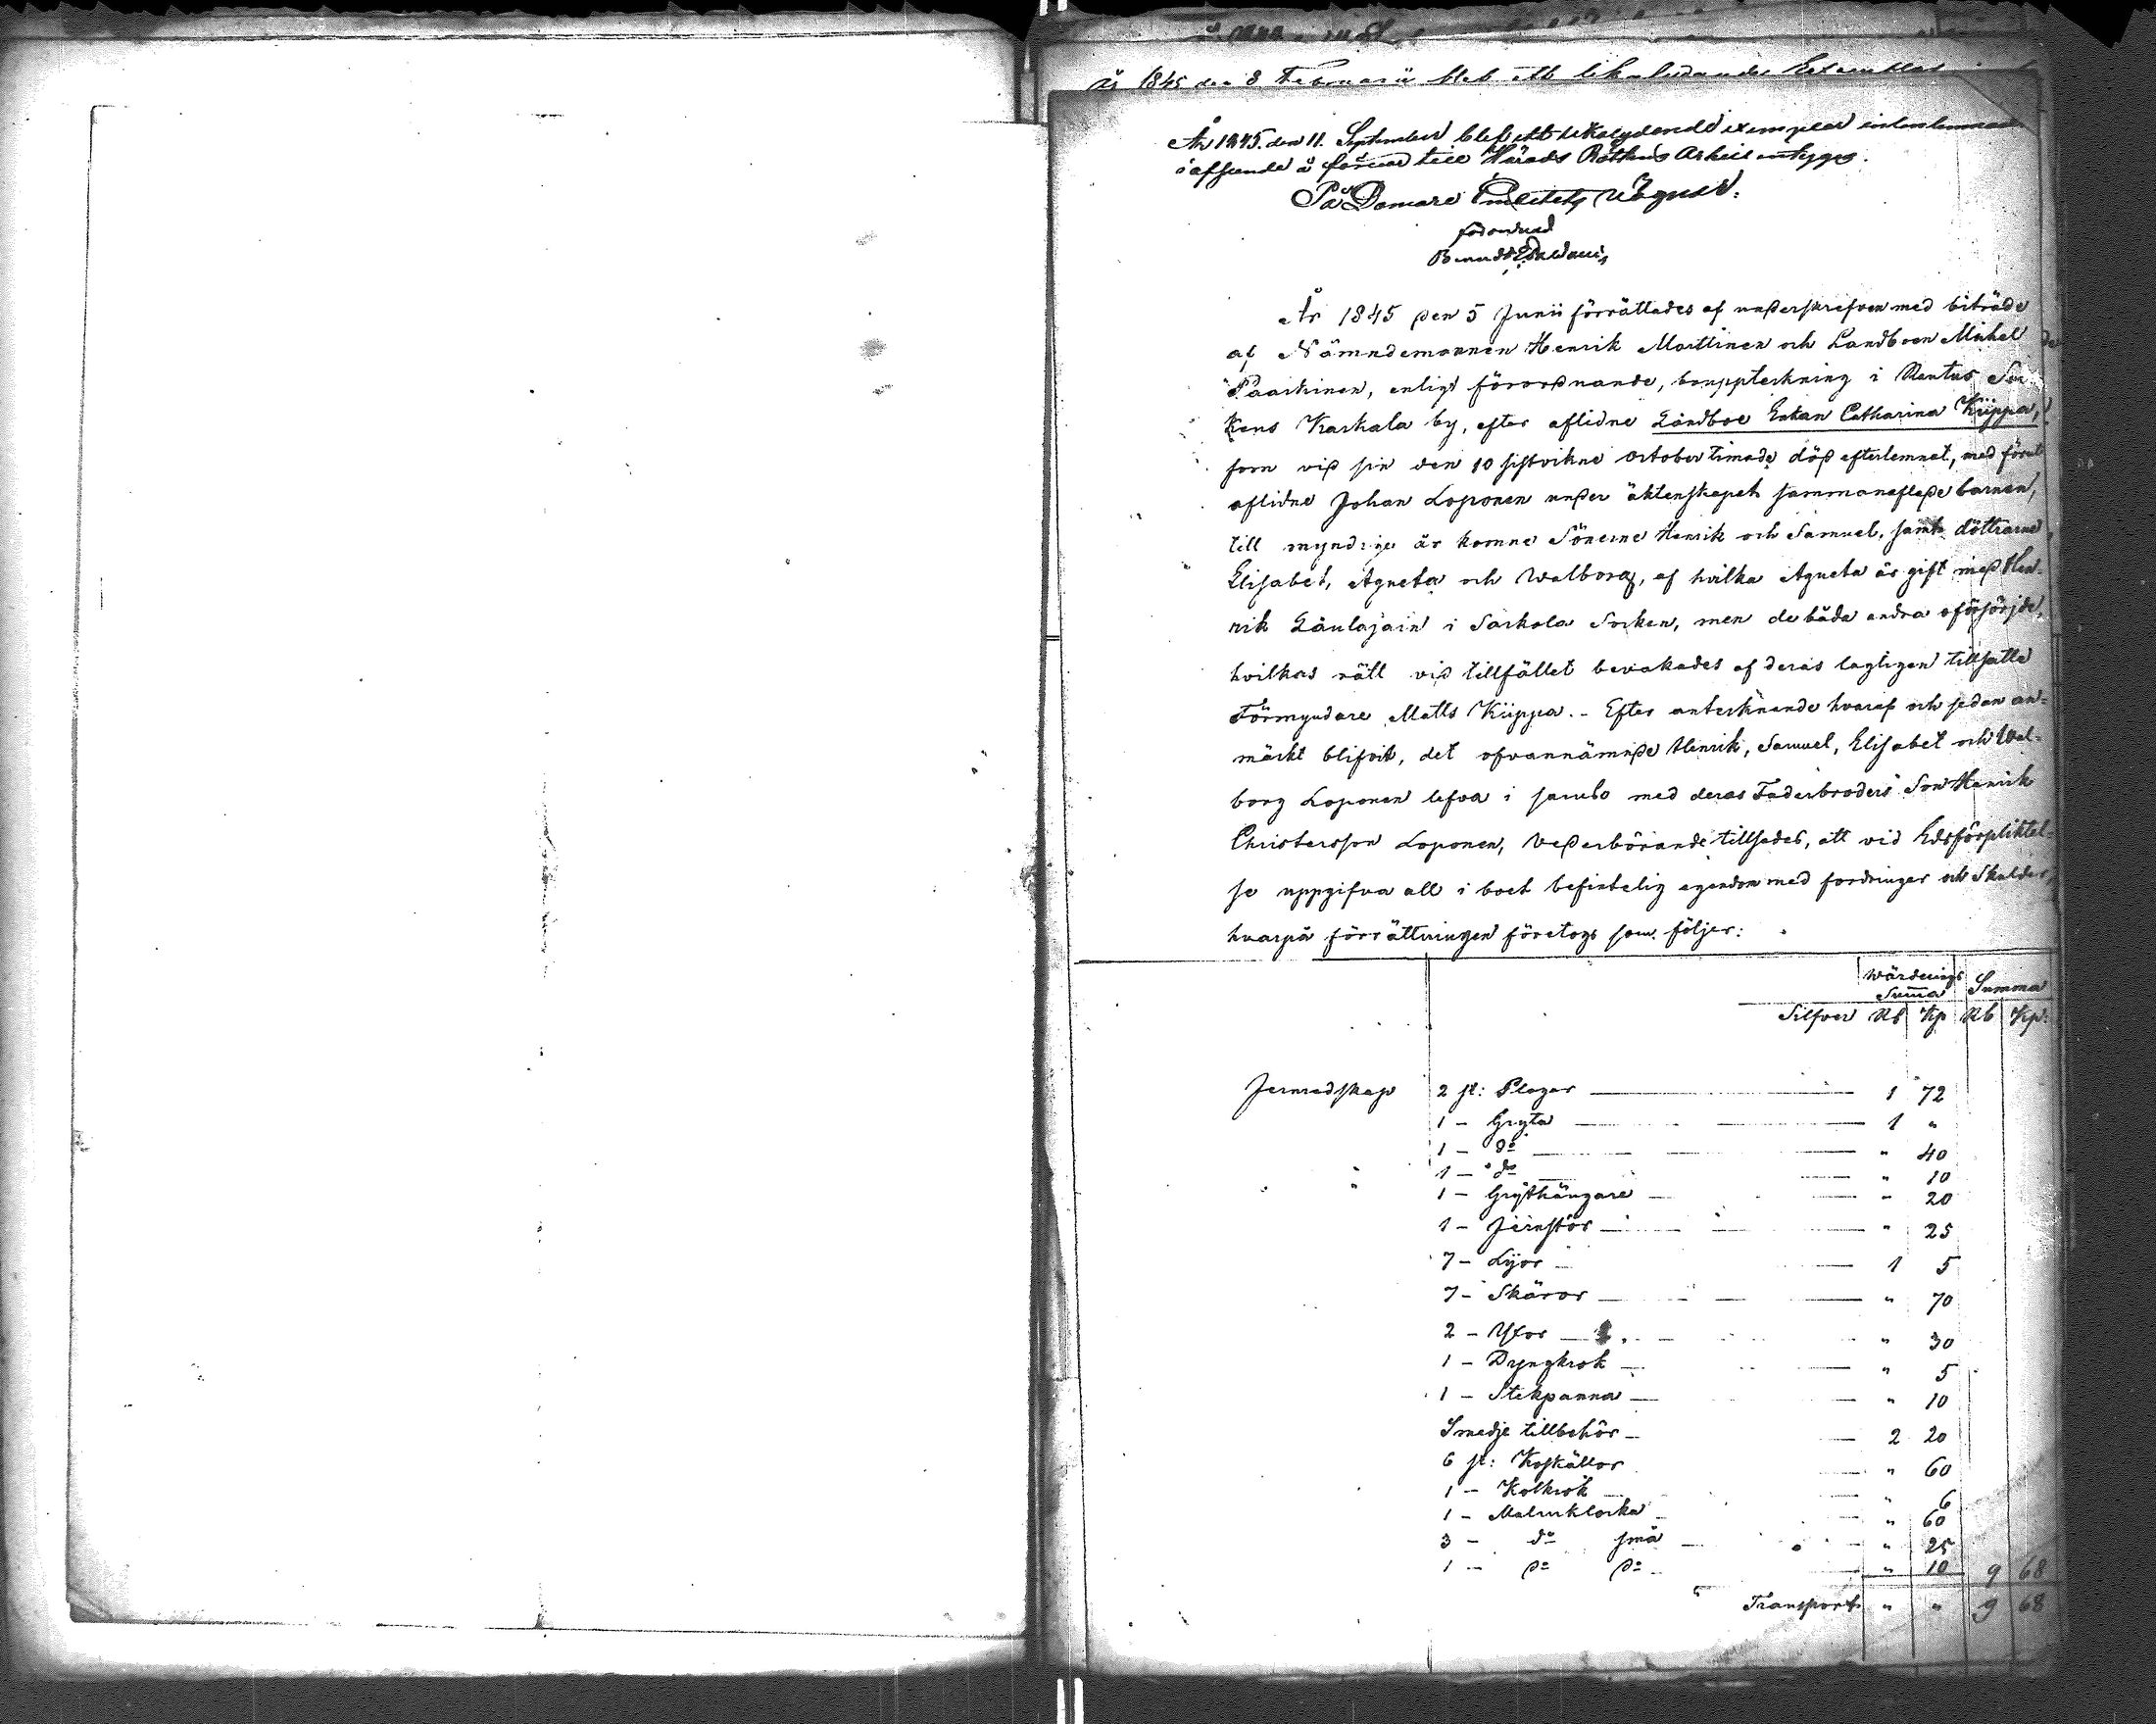 År 1845 den 8 Februarii blef ett likaludande Exemplar
År 1845. den 11. September blef ett likalydande exemplar inlemnadt
i afseende å förvar till Härads Rättens Arkiv intygas.
På Domare Embetets Wägnar:
förordnad
År 1845 den 5 Junii förrättades af underskrefven med biträde
af Nämndemannen Henrik Marttinen och Landboen Mickel
Paarhinen, enligt förordnande, bouppteckning i Rautus Soc-
kens Karhala by, efter aflidne Landboe Enkan Catharina Kiippa,
som vid sin den 10 sistvikne October timade död efterlemnat, med förut
aflidne Johan Loponen under äktenskapet sammanaflade barnen,
till myndiga år komne Sönerne Henrik och Samuel, samt döttrarne
Elisabet, Agneta och Walborg, af hvilka Agneta är gift med Hen-
rik Laulajain i Sakkola Socken, men de båda andra oförsörjde,
hvilkas rätt vid tillfället bevakades af deras lagligen tillsatte
Förmyndare Matts Kiippa. - Efter antecknande hvaraf och sedan an-
märkt blifvit, det ofvannämnde Henrik, Samuel, Elisabet och Wal-
borg Loponen lefva i samebo med deras Faderbroders Son Henrik
Christersson Loponen, vederbörande tillsades, att vid Edsförpliktel-
se uppgifva all i boet befintelig egendom med fordringar och Skulder,
hvarpå förrättningen företogs som följer:
Wärderings Summa Summa
Silfver Rb Kp Rb Kp:
Jernredskap 2 st: Plogar 1 72
1 - Gryta 1 "
1 - do " 40
1 - do " 10
1 - Grythängare " 20
1 - Jernstör " 25
7 - Lijor 1 5
7 - Skäror " 70
2 - Yxor " 30
1 - Dyngkrok " 5
1 - Stekpanna " 10
Smedje tillbehör 2 20
6 st: Koskällor " 60
1 - Kolkrok " 6
1 - Malmklocka " 60
3 - do små " 25
1 - do do " 10 9 68
Transport " " 9 68